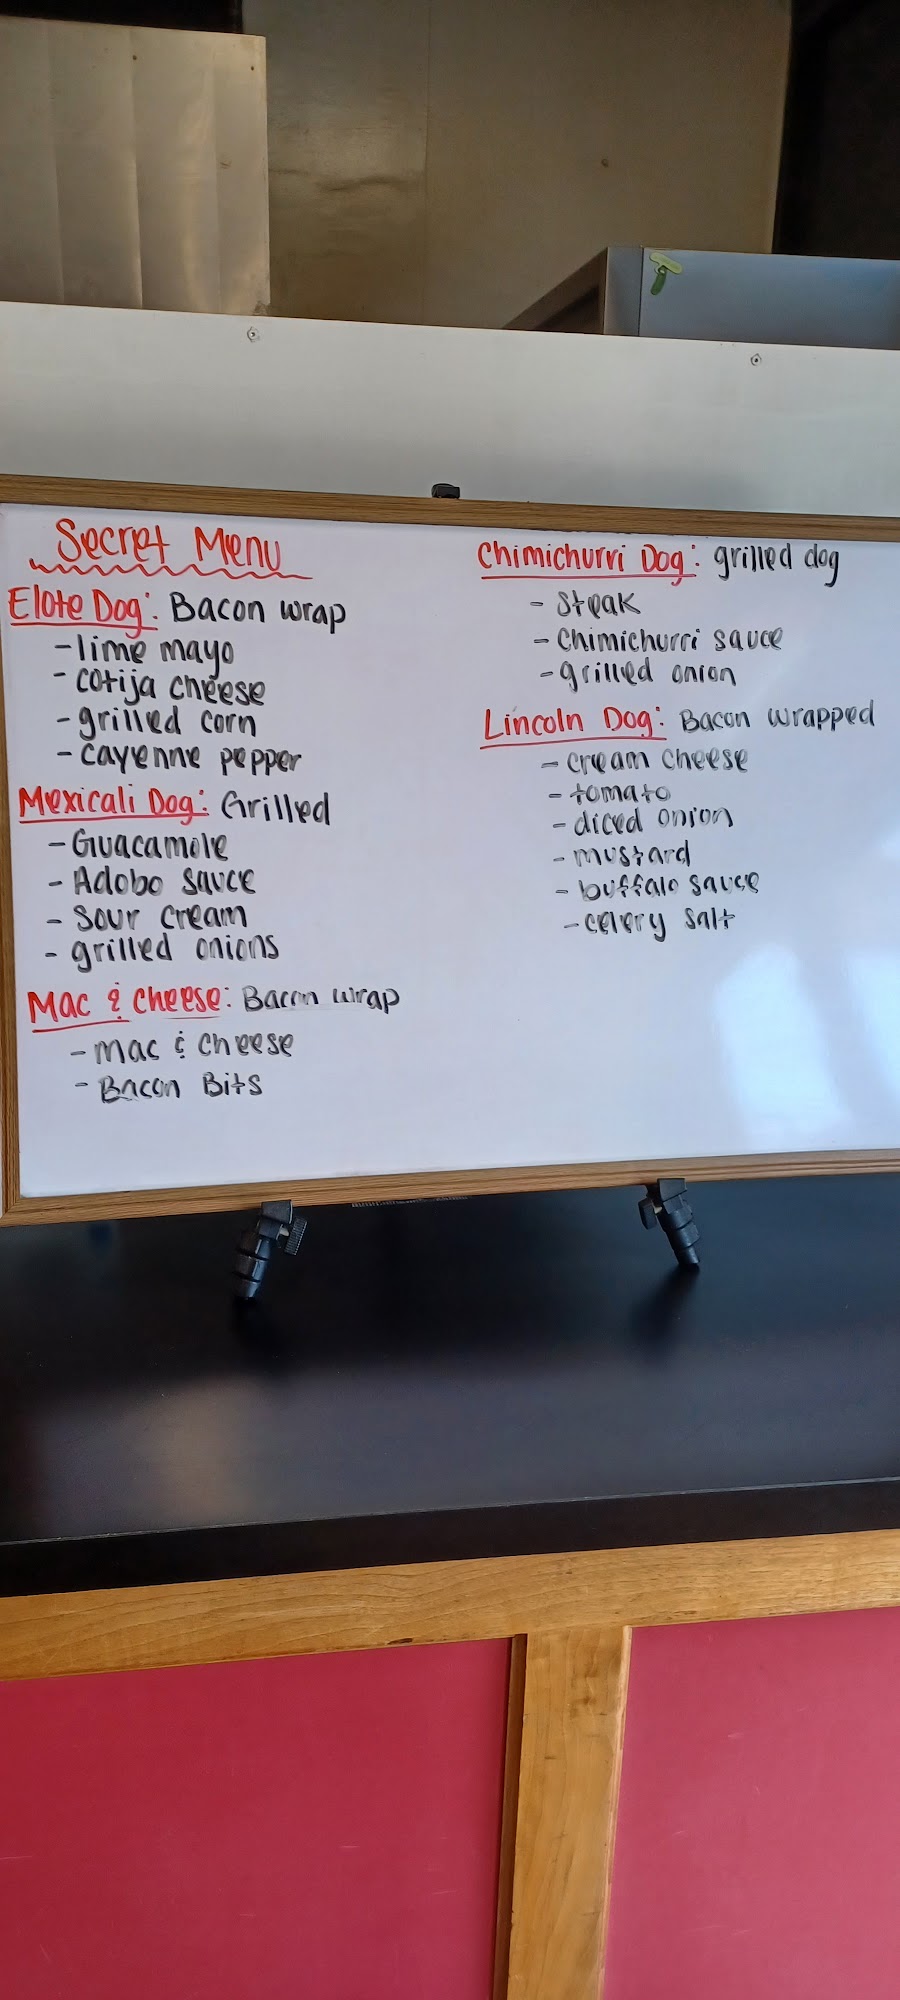 Secret Menu
Elote Dog: Bacon wrap
- lime mayo
- cotija cheese
- grilled corn
- cayenne pepper
Mexicali Dog: Grilled
- Guacamole
- Adobo sauce
- Sour cream
- grilled onions
Mac & cheese: Bacon wrap
- mac & cheese
- Bacon Bits
Chimichurri Dog: grilled dog
- steak
- chimichurri sauce
- grilled onion
Lincoln Dog: Bacon wrapped
- cream cheese
- tomato
- diced onion
- mustard
- buffalo sauce
- celery salt